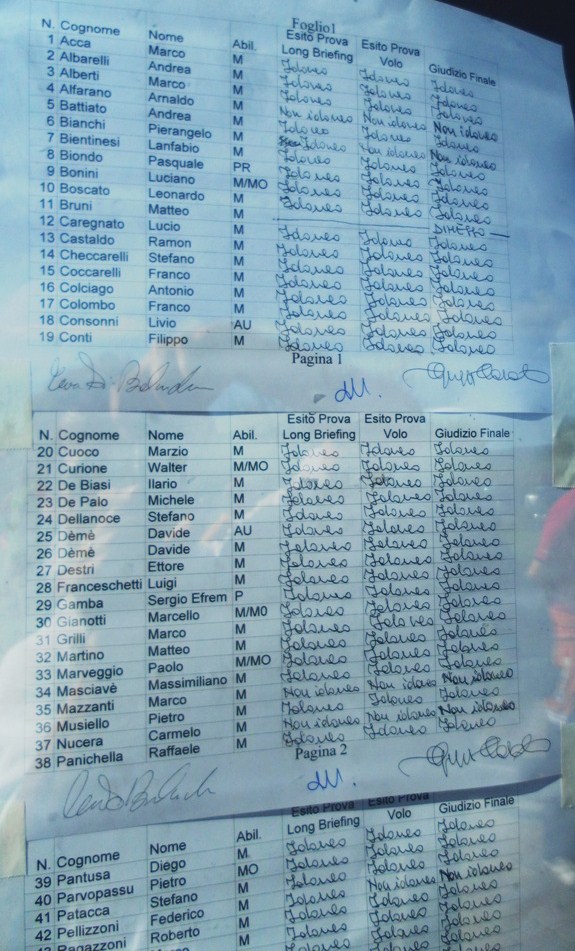 Foglio1
N. Cognome Nome Abil. Esito Prova Long Briefing Esito Prova Volo Giudizio Finale
1 Acca Marco M Idoneo Idoneo Idoneo
2 Albarelli Andrea M Idoneo Idoneo Idoneo
3 Alberti Marco M Idoneo Idoneo Idoneo
4 Alfarano Arnaldo M Non idoneo Non idoneo Non idoneo
5 Battiato Andrea M Idoneo Idoneo Idoneo
6 Bianchi Pierangelo M Idoneo Non idoneo Non idoneo
7 Bientinesi Lanfabio M Idoneo Idoneo Idoneo
8 Biondo Pasquale PR Idoneo Idoneo Idoneo
9 Bonini Luciano M/MO Idoneo Idoneo Idoneo
10 Boscato Leonardo M Idoneo Idoneo Idoneo
11 Bruni Matteo M DIMESSO
12 Caregnato Lucio M Idoneo Idoneo Idoneo
13 Castaldo Ramon M Idoneo Idoneo Idoneo
14 Checcarelli Stefano M Idoneo Idoneo Idoneo
15 Coccarelli Franco M Idoneo Idoneo Idoneo
16 Colciago Antonio M Idoneo Idoneo Idoneo
17 Colombo Franco M Idoneo Idoneo Idoneo
18 Consonni Livio AU Idoneo Idoneo Idoneo
19 Conti Filippo M Idoneo Idoneo Idoneo
Pagina 1
N. Cognome Nome Abil. Esito Prova Long Briefing Esito Prova Volo Giudizio Finale
20 Cuoco Marzio M Idoneo Idoneo Idoneo
21 Curione Walter M/MO Idoneo Idoneo Idoneo
22 De Biasi Ilario M Idoneo Idoneo Idoneo
23 De Palo Michele M Idoneo Idoneo Idoneo
24 Dellanoce Stefano M Idoneo Idoneo Idoneo
25 Dèmè Davide AU Idoneo Idoneo Idoneo
26 Dèmè Davide M Idoneo Idoneo Idoneo
27 Destri Ettore M Idoneo Idoneo Idoneo
28 Franceschetti Luigi M Idoneo Idoneo Idoneo
29 Gamba Sergio Efrem P Idoneo Idoneo Idoneo
30 Gianotti Marcello M/M0 Idoneo Idoneo Idoneo
31 Grilli Marco M Idoneo Idoneo Idoneo
32 Martino Matteo M Idoneo Idoneo Idoneo
33 Marveggio Paolo M/MO Idoneo Idoneo Idoneo
34 Masciavè Massimiliano M Idoneo Idoneo Idoneo
35 Mazzanti Marco M Non idoneo Non idoneo Non idoneo
36 Musiello Pietro M Idoneo Idoneo Idoneo
37 Nucera Carmelo M Non idoneo Non idoneo Non idoneo
38 Panichella Raffaele M Idoneo Idoneo Idoneo
Pagina 2
N. Cognome Nome Abil. Esito Prova Long Briefing Esito Prova Volo Giudizio Finale
39 Pantusa Diego M Idoneo Idoneo Idoneo
40 Parvopassu Pietro MO Idoneo Idoneo Idoneo
41 Patacca Stefano M Idoneo Idoneo Idoneo
42 Pellizzoni Federico M Idoneo Non idoneo Non idoneo
Ragazzoni Roberto M Idoneo Idoneo Idoneo